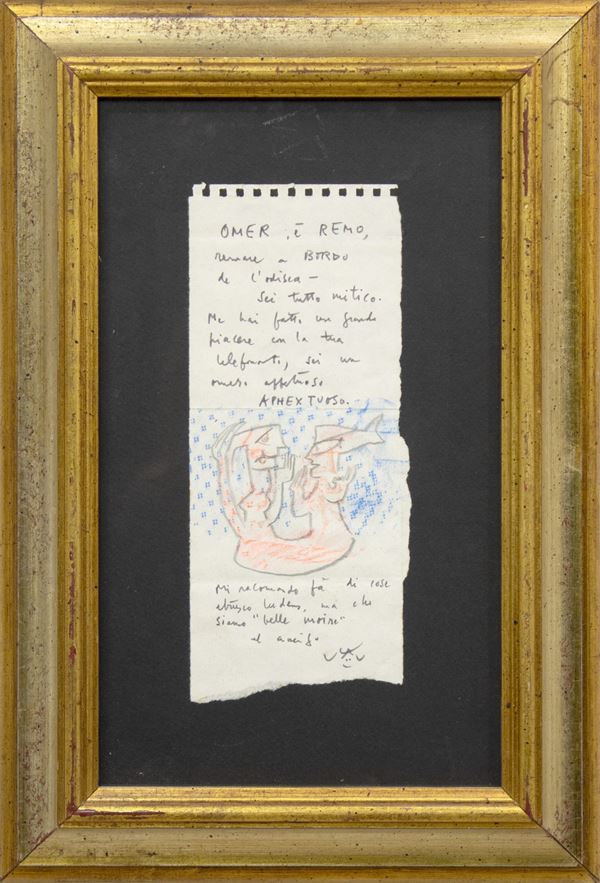 OMER, è REMO,
remare a BORDO
de l'odisea —
sei tutto mitico.
Me hai fatto un grande
piacere con la tua
telefonata, sei un
omero affettuoso
APHEXTUOSO.
Mi raccomando fà di cose
etrusco ludens, ma che
siamo "belle moire"